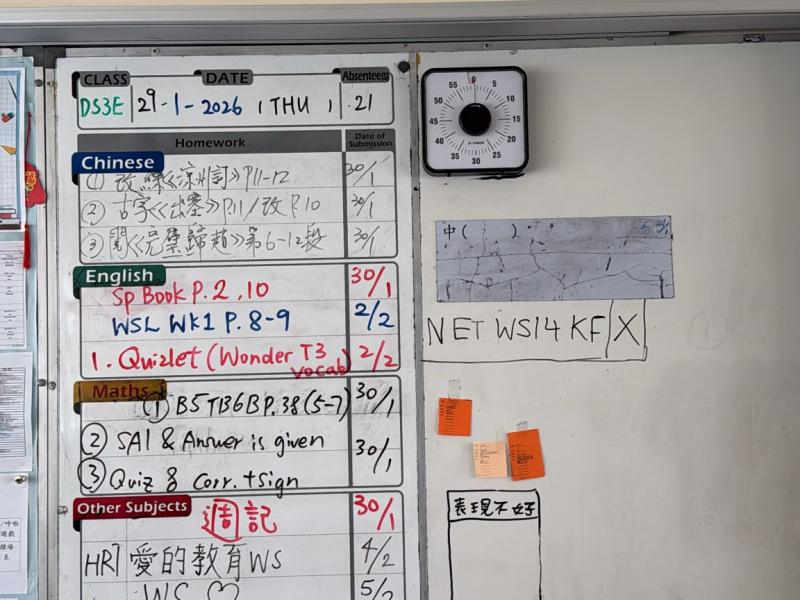 CLASS DATE Absentee(s)
DS3E 29-1-2026 (THU) 21
Homework Date of Submission
Chinese
① 改線《涼州詞》P.11-12 30/1
② 古字《出塞》P.11/改 P.10 30/1
③ 閱《完璧歸趙》第6-12段 30/1
English
Sp Book P. 2, 10 30/1
WSL WK1 P. 8-9 2/2
1. Quizlet (Wonder T3 vocab) 2/2
Maths
① B5TB6B P.38 (5-7) 30/1
② SA1 & Answer is given 30/1
③ Quiz & Corr. + Sign
Other Subjects
週記 30/1
HRT 愛的教育WS 4/2
WS ♡ 5/2
0 5 10 15 20 25 30 35 40 45 50 55
中( )
NET WS14 KF X
表現不好